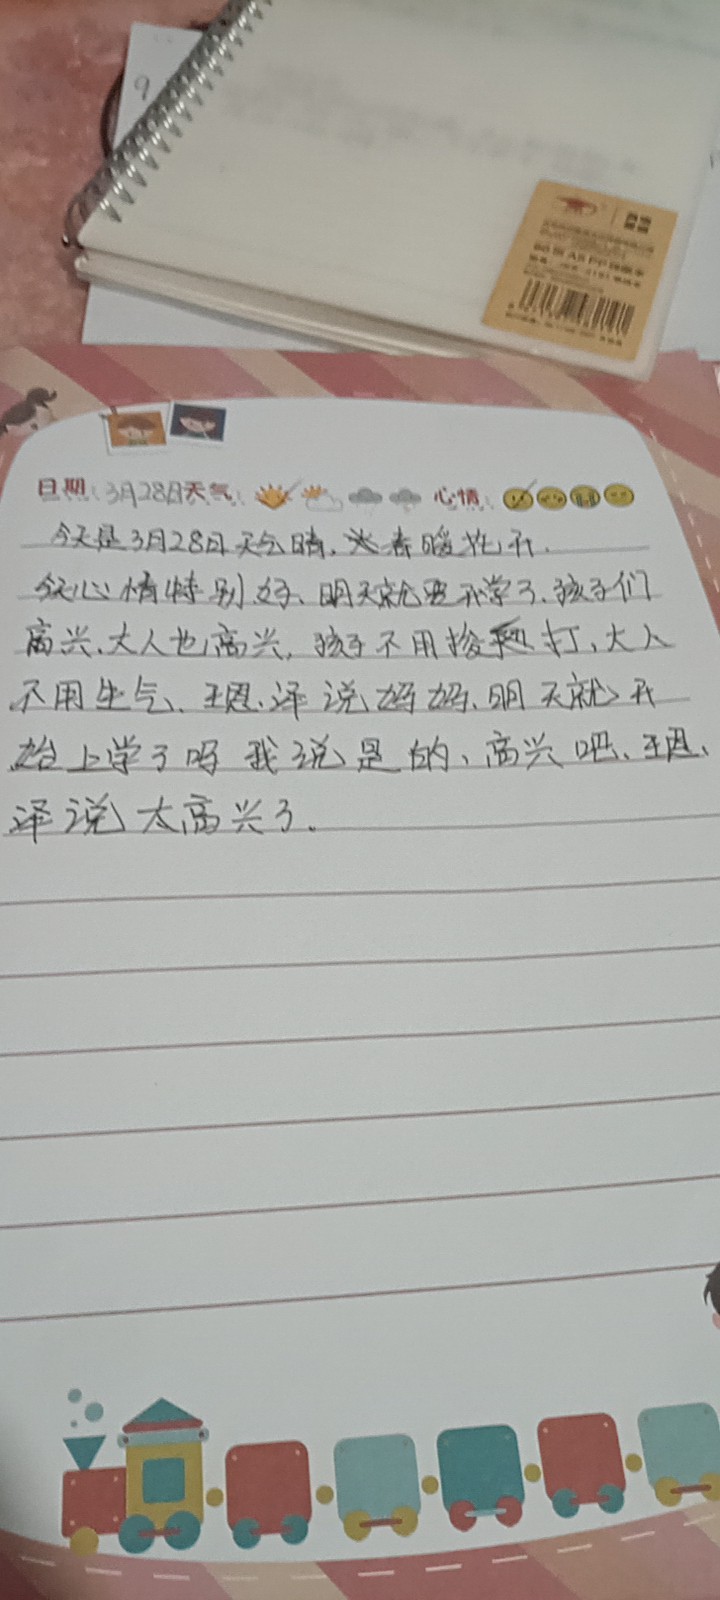 9
日期:3月28日天气: 心情:
今天是3月28日天气晴、春暖花开.
今天心情特别好、明天就要开学了、孩子们
高兴、大人也高兴,孩子不用挨打、大人
不用生气、王恩泽说妈妈、明天就开
始上学了吗我说是的、高兴吧、王恩
泽说太高兴了。